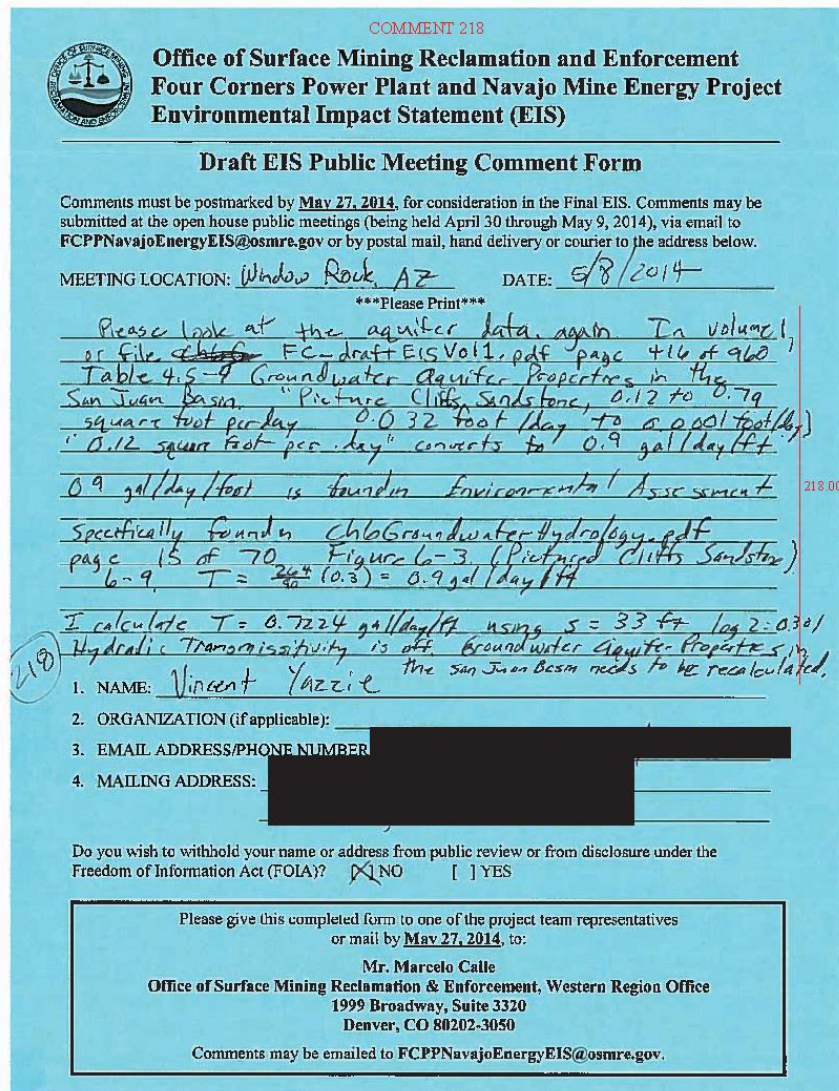 COMMENT 218
Office of Surface Mining Reclamation and Enforcement
Four Corners Power Plant and Navajo Mine Energy Project
Environmental Impact Statement (EIS)
Draft EIS Public Meeting Comment Form
Comments must be postmarked by May 27, 2014, for consideration in the Final EIS. Comments may be
submitted at the open house public meetings (being held April 30 through May 9, 2014), via email to
FCPPNavajoEnergyEIS@osmre.gov or by postal mail, hand delivery or courier to the address below.
MEETING LOCATION: Window Rock, AZ DATE: 5/8/2014
***Please Print***
Please look at the aquifer data. again. In volume 1,
or file FC-draftEISVol1.pdf page 416 of 960
Table 4.5-9 Groundwater Aquifer Properties in the
San Juan Basin. "Picture Cliffs Sandstone, 0.12 to 0.79
square foot per day 0.032 foot/day to 0.0001 foot/day)
"0.12 square foot per day" converts to 0.9 gal/day/ft
0.9 gal/day/foot is found in Environmental Assessment
218.00
Specifically found in Ch6GroundwaterHydrology.pdf
page 15 of 70 Figure 6-3. (Pictured Cliffs Sandstone)
6-9. T = 264/90 (0.3) = 0.9 gal/day/ft
I calculate T = 0.7224 gal/day/ft using s = 33 ft log 2 = 0.301
Hydralic Transmissitivity is off. Groundwater Aquifer Properties in
the San Juan Basin needs to be recalculated.
218
1. NAME: Vincent Yazzie
2. ORGANIZATION (if applicable):
3. EMAIL ADDRESS/PHONE NUMBER
4. MAILING ADDRESS:
Do you wish to withhold your name or address from public review or from disclosure under the
Freedom of Information Act (FOIA)? [X] NO [ ] YES
Please give this completed form to one of the project team representatives
or mail by May 27, 2014, to:
Mr. Marcelo Calle
Office of Surface Mining Reclamation & Enforcement, Western Region Office
1999 Broadway, Suite 3320
Denver, CO 80202-3050
Comments may be emailed to FCPPNavajoEnergyEIS@osmre.gov.